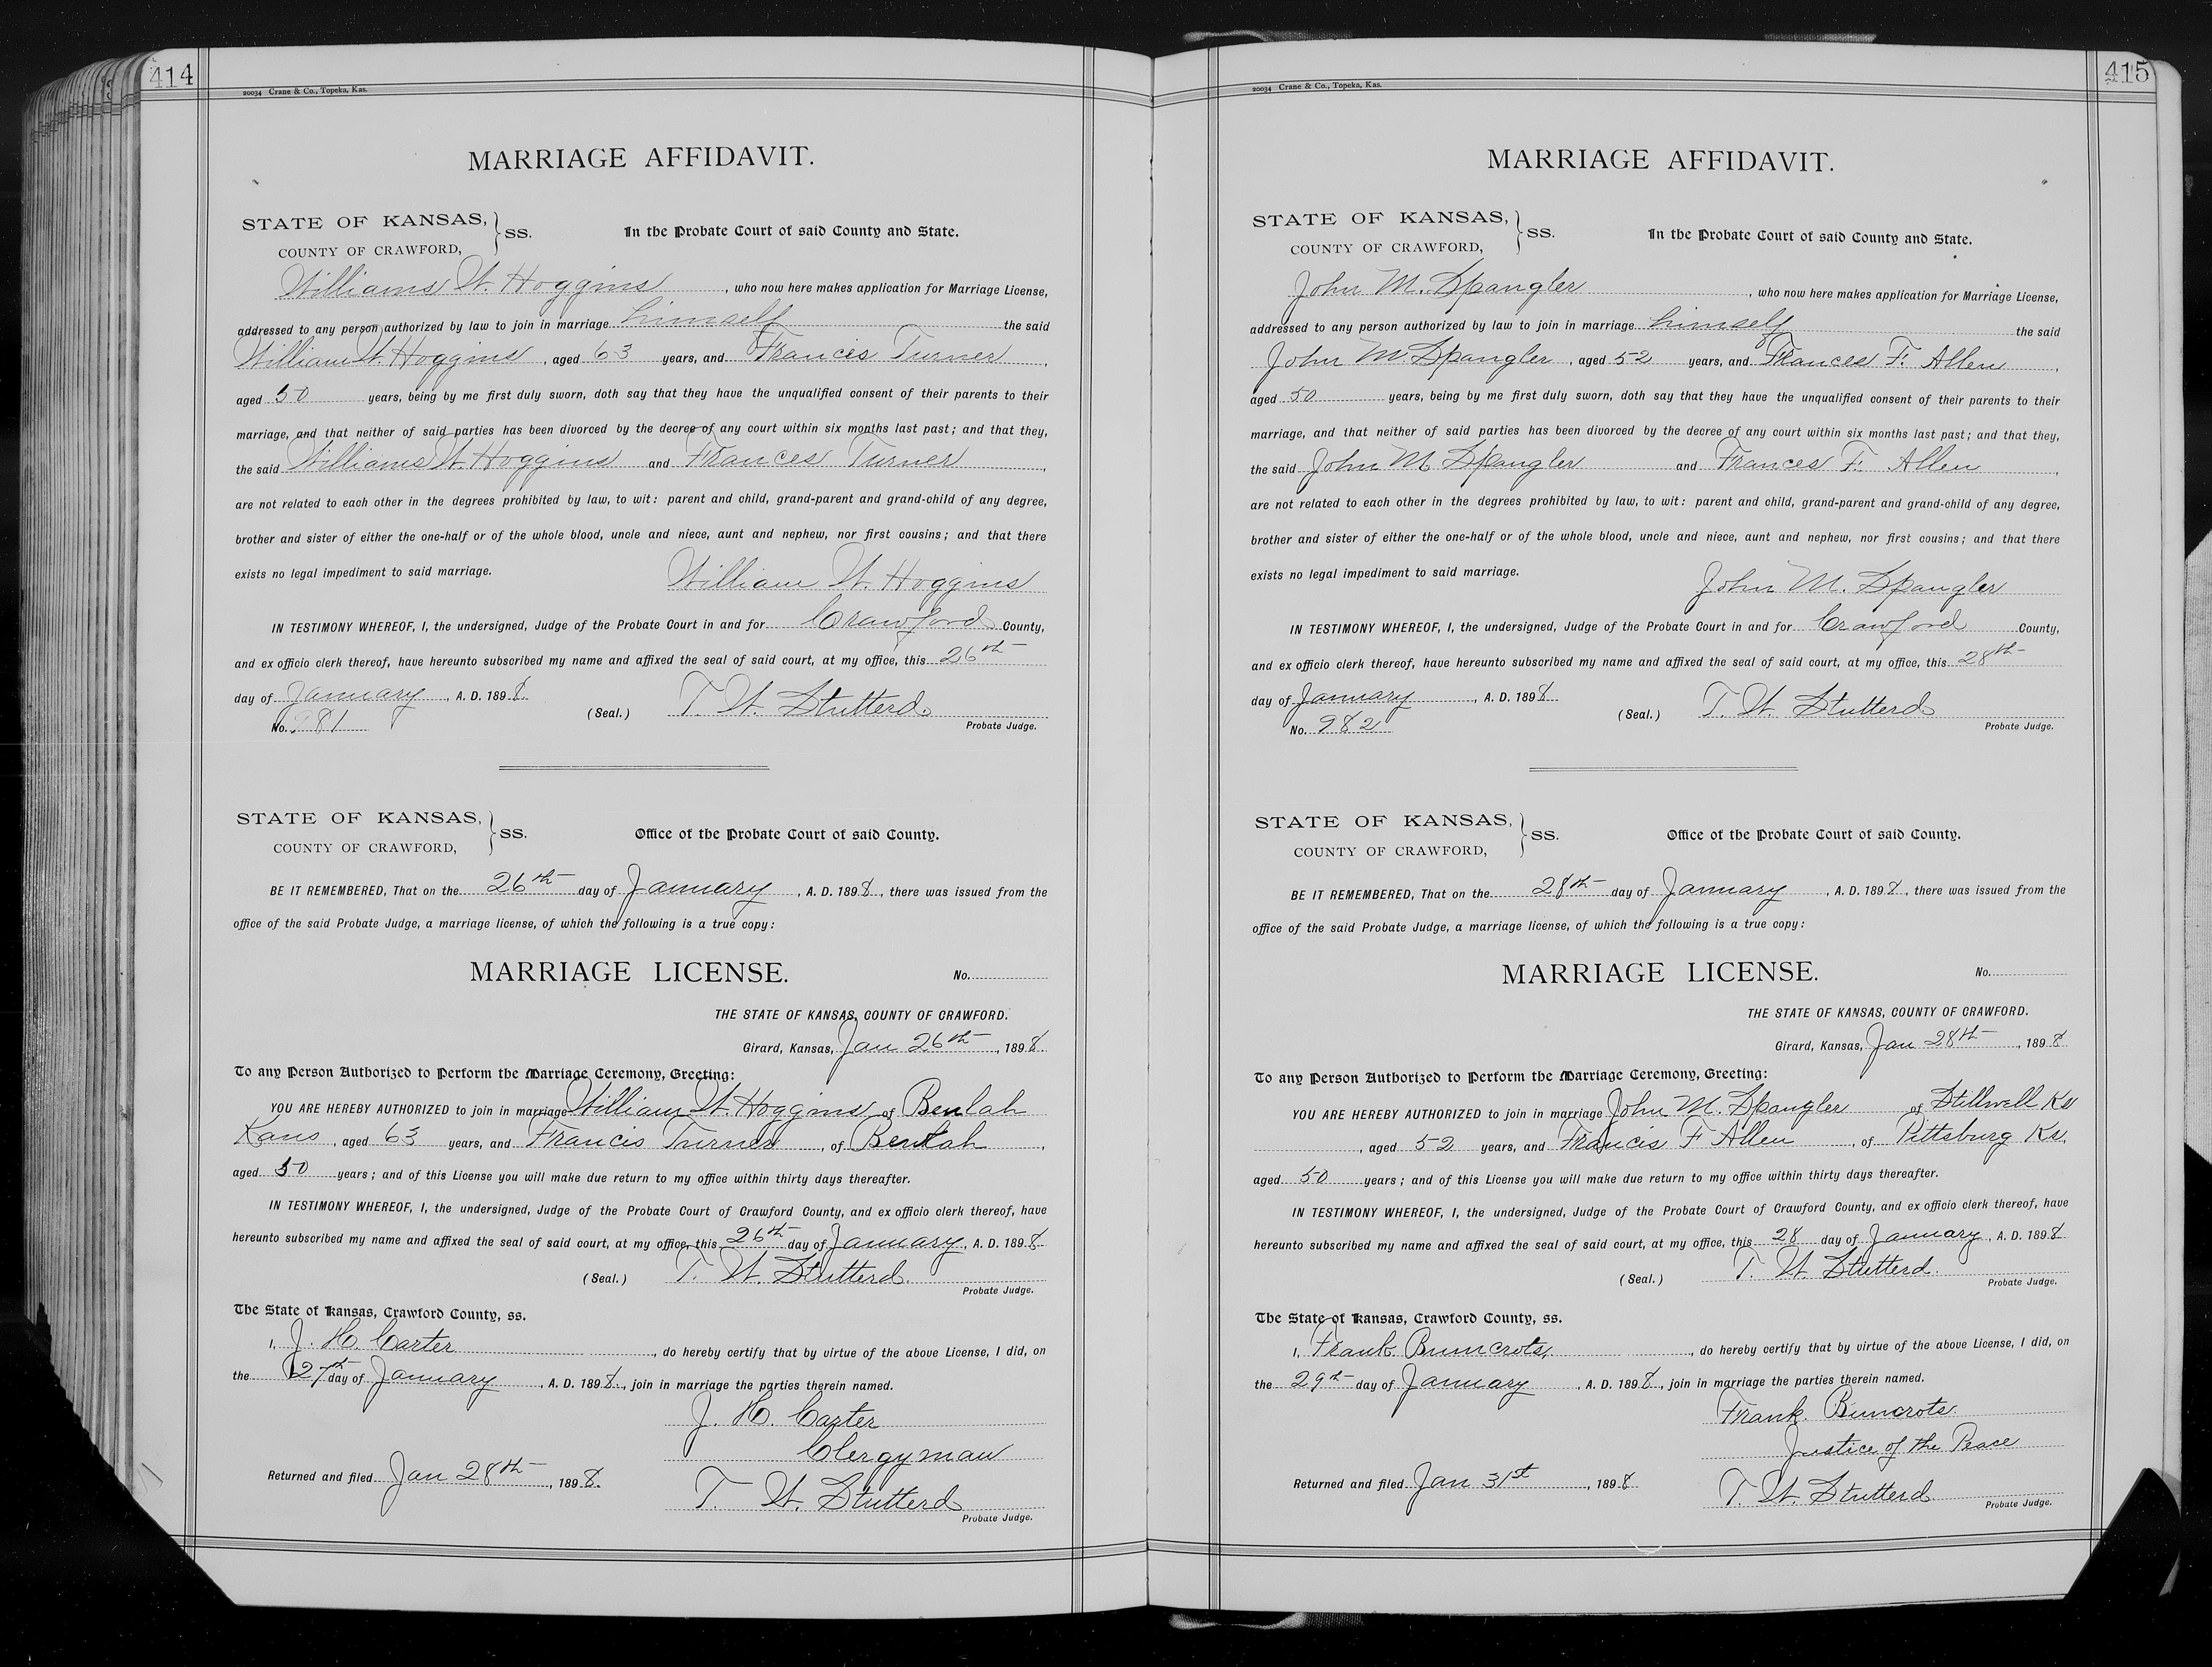 414
20034 Crane & Co., Topeka, Kas.
MARRIAGE AFFIDAVIT.
STATE OF KANSAS, } SS. In the Probate Court of said County and State.
COUNTY OF CRAWFORD,
Williams W. Hoggins, who now here makes application for Marriage License,
addressed to any person authorized by law to join in marriage himself the said
William W. Hoggins, aged 63 years, and Francis Turner,
aged 50 years, being by me first duly sworn, doth say that they have the unqualified consent of their parents to their
marriage, and that neither of said parties has been divorced by the decree of any court within six months last past; and that they,
the said Williams W Hoggins and Frances Turner,
are not related to each other in the degrees prohibited by law, to wit: parent and child, grand-parent and grand-child of any degree,
brother and sister of either the one-half or of the whole blood, uncle and niece, aunt and nephew, nor first cousins; and that there
exists no legal impediment to said marriage. William W. Hoggins
IN TESTIMONY WHEREOF, I, the undersigned, Judge of the Probate Court in and for Crawford County,
and ex officio clerk thereof, have hereunto subscribed my name and affixed the seal of said court, at my office, this 26th
day of January, A. D. 1898. (Seal.) T. W. Stutterd
No. 981 Probate Judge.
STATE OF KANSAS, } SS. Office of the Probate Court of said County.
COUNTY OF CRAWFORD,
BE IT REMEMBERED, That on the 26th day of January, A. D. 1898, there was issued from the
office of the said Probate Judge, a marriage license, of which the following is a true copy:
MARRIAGE LICENSE. No.
THE STATE OF KANSAS, COUNTY OF CRAWFORD.
Girard, Kansas, Jan 26th, 1898.
To any Person Authorized to Perform the Marriage Ceremony, Greeting:
YOU ARE HEREBY AUTHORIZED to join in marriage William W. Hoggins of Beulah
Kans, aged 63 years, and Francis Turner, of Beulah,
aged 50 years; and of this License you will make due return to my office within thirty days thereafter.
IN TESTIMONY WHEREOF, I, the undersigned, Judge of the Probate Court of Crawford County, and ex officio clerk thereof, have
hereunto subscribed my name and affixed the seal of said court, at my office, this 26th day of January, A. D. 1898.
(Seal.) T. W. Stutterd.
Probate Judge.
The State of Kansas, Crawford County, ss.
I, J. H. Carter, do hereby certify that by virtue of the above License, I did, on
the 27th day of January, A. D. 1898, join in marriage the parties therein named.
J. H. Carter
Clergyman
Returned and filed Jan 28th, 1898. T. W. Stutterd
Probate Judge.
415
20034 Crane & Co., Topeka, Kas.
MARRIAGE AFFIDAVIT.
STATE OF KANSAS, } SS. In the Probate Court of said County and State.
COUNTY OF CRAWFORD,
John M. Spangler, who now here makes application for Marriage License,
addressed to any person authorized by law to join in marriage himself the said
John M. Spangler, aged 52 years, and Frances F. Allen,
aged 50 years, being by me first duly sworn, doth say that they have the unqualified consent of their parents to their
marriage, and that neither of said parties has been divorced by the decree of any court within six months last past; and that they,
the said John M Spangler and Frances F. Allen,
are not related to each other in the degrees prohibited by law, to wit: parent and child, grand-parent and grand-child of any degree,
brother and sister of either the one-half or of the whole blood, uncle and niece, aunt and nephew, nor first cousins; and that there
exists no legal impediment to said marriage. John M. Spangler
IN TESTIMONY WHEREOF, I, the undersigned, Judge of the Probate Court in and for Crawford County,
and ex officio clerk thereof, have hereunto subscribed my name and affixed the seal of said court, at my office, this 28th
day of January, A. D. 1898. (Seal.) T. W. Stutterd
No. 982 Probate Judge.
STATE OF KANSAS, } SS. Office of the Probate Court of said County.
COUNTY OF CRAWFORD,
BE IT REMEMBERED, That on the 28th day of January, A. D. 1898, there was issued from the
office of the said Probate Judge, a marriage license, of which the following is a true copy:
MARRIAGE LICENSE. No.
THE STATE OF KANSAS, COUNTY OF CRAWFORD.
Girard, Kansas, Jan 28th, 1898.
To any Person Authorized to Perform the Marriage Ceremony, Greeting:
YOU ARE HEREBY AUTHORIZED to join in marriage John M. Spangler of Stillwell Ks
, aged 52 years, and Francis F Allen, of Pittsburg Ks.
aged 50 years; and of this License you will make due return to my office within thirty days thereafter.
IN TESTIMONY WHEREOF, I, the undersigned, Judge of the Probate Court of Crawford County, and ex officio clerk thereof, have
hereunto subscribed my name and affixed the seal of said court, at my office, this 28 day of January, A. D. 1898.
(Seal.) T. W. Stutterd.
Probate Judge.
The State of Kansas, Crawford County, ss.
I, Frank Bumcrots, do hereby certify that by virtue of the above License, I did, on
the 29th day of January, A. D. 1898, join in marriage the parties therein named.
Frank Bumcrots.
Justice of the Peace
Returned and filed Jan 31st, 1898 T. W. Stutterd
Probate Judge.